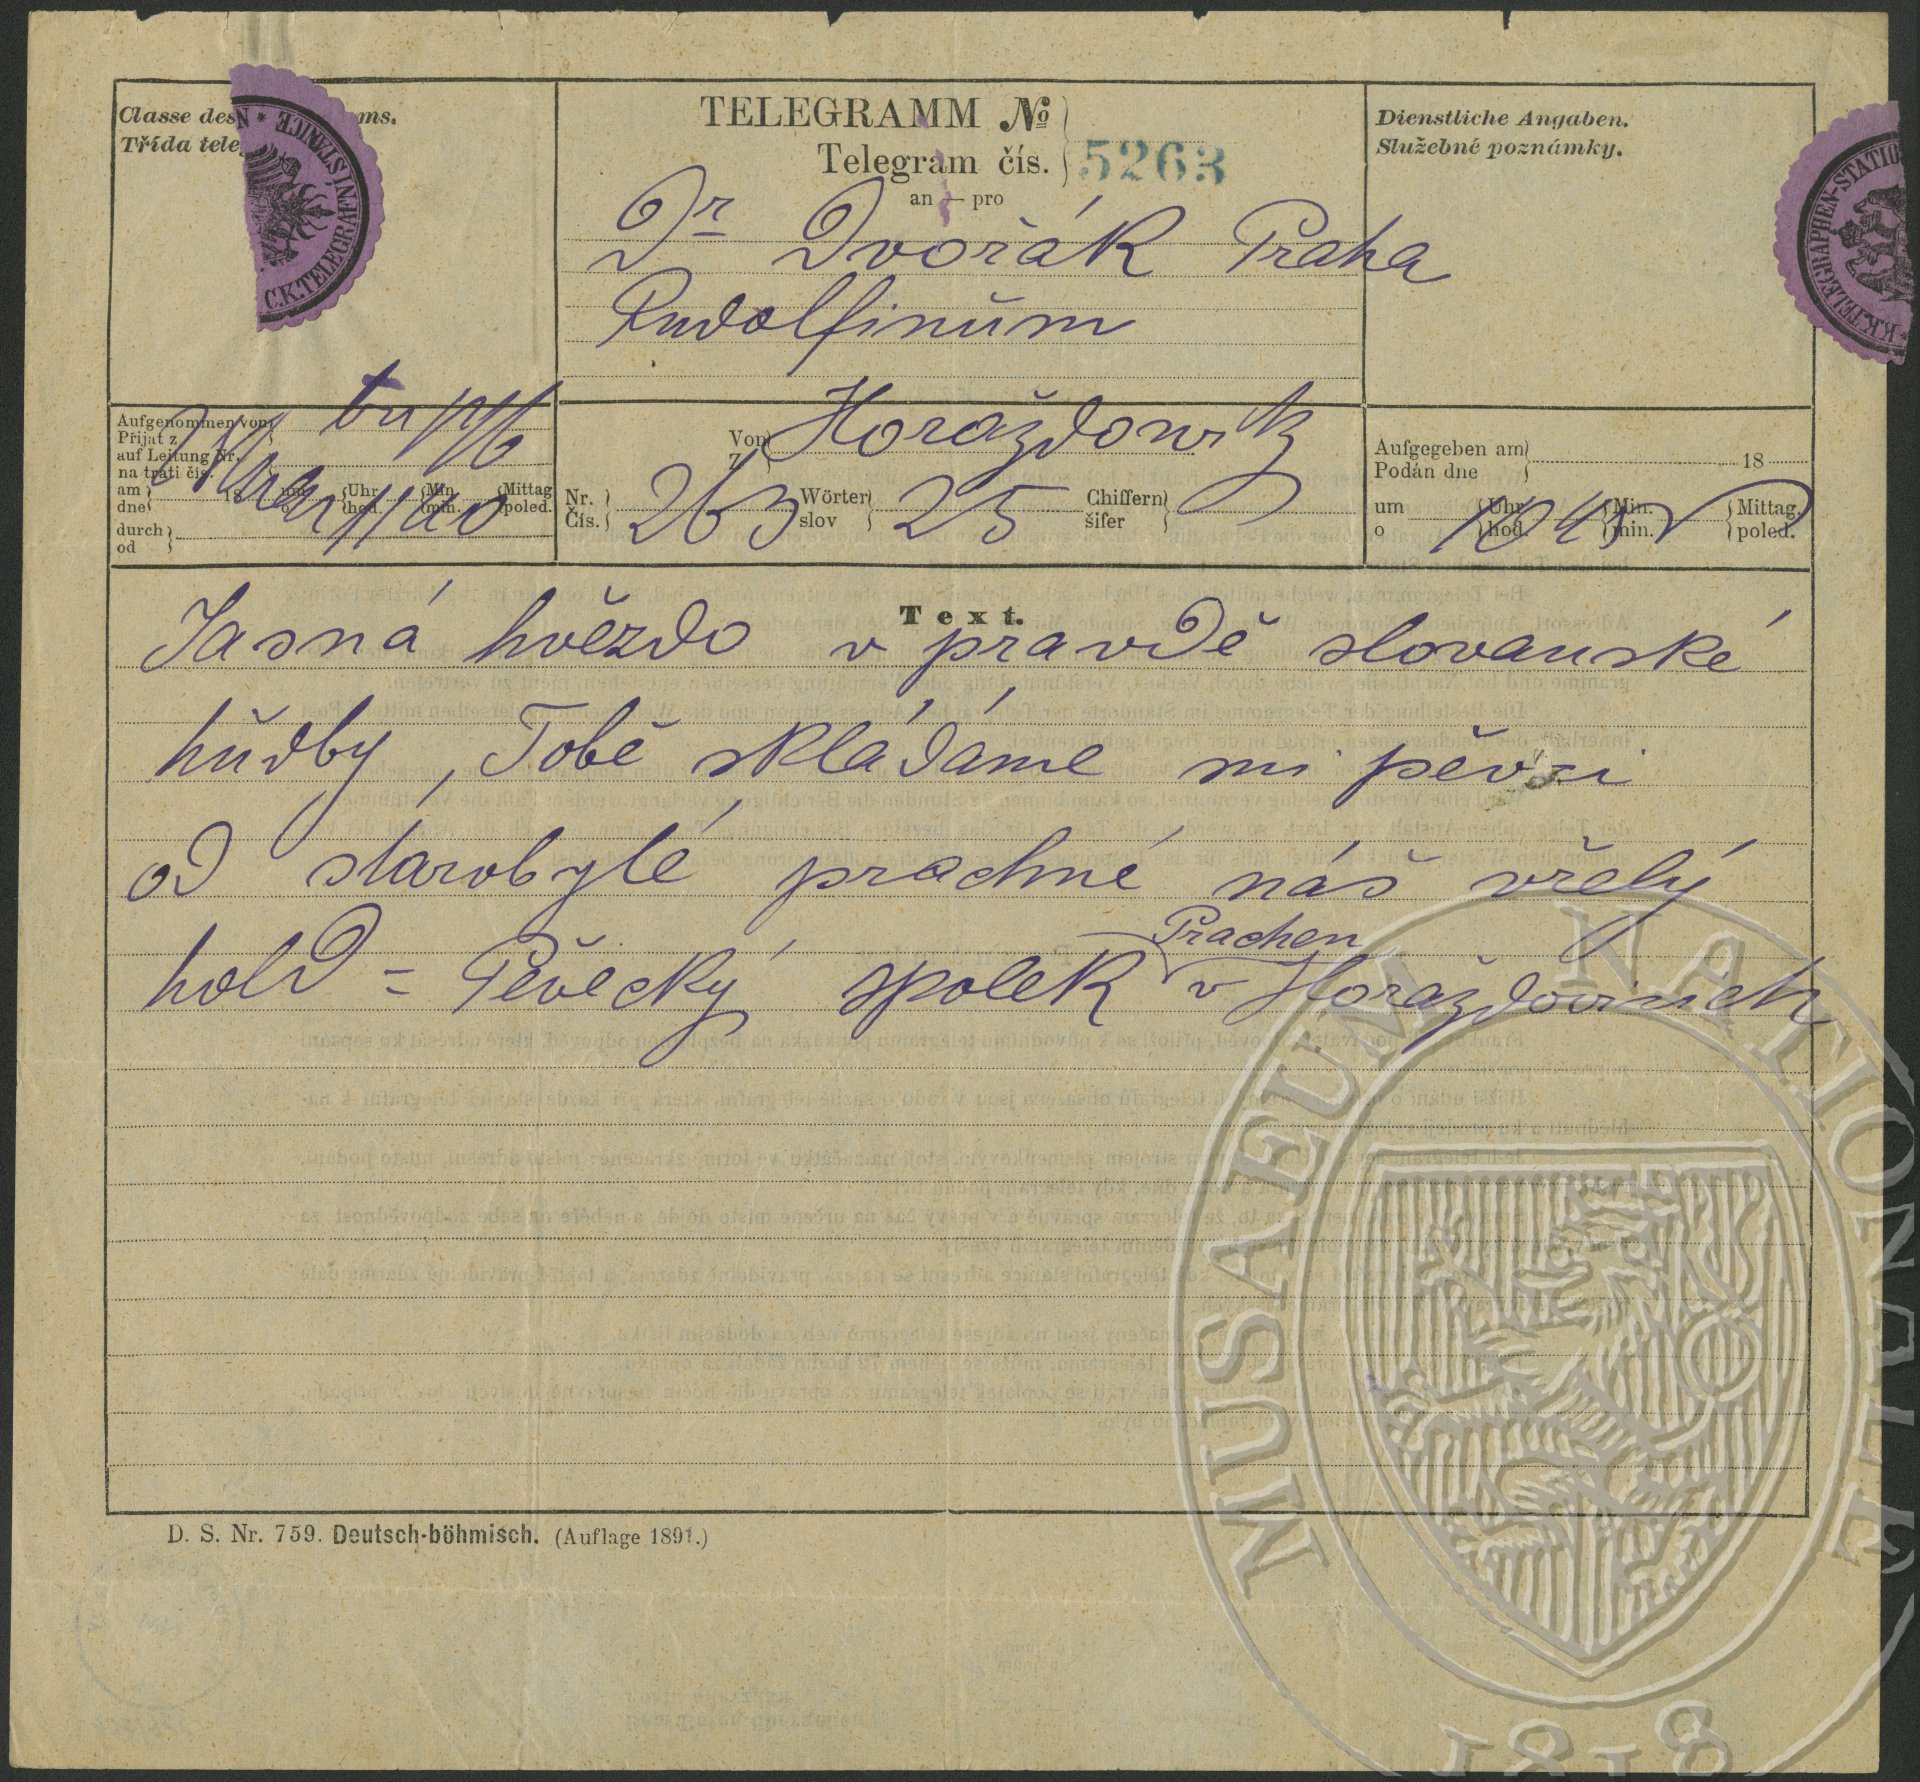 Classe des ms.
Třída tele
TELEGRAMM №
Telegram čís. 5263
an — pro
Dienstliche Angaben.
Služebné poznámky.
N * C.K.TELEGRAFNÍ STANICE *
* K.K.TELEGRAPHEN-STATIO
Dr Dvořák Praha
Rudolfinŭm
Aufgenommen von
Přijat z
auf Leitung Nr.
na trati čís.
am
dne
18
Uhr
hod.
Min.
min.
Mittag
poled.
durch
od
Von
z
Horažďowitz
Nr.
Čís. 263
Wörter
slov 25
Chiffern
šifer
Aufgegeben am
Podán dne 18
um
o
Uhr
hod.
Min.
min.
Mittag.
poled.
Text.
Jasná hvězdo v pravdě slovanské
hŭdby, Tobě skládáme mi pěvci
od starobylé práchně náš vřelý
Prachen
hold = Pěvecký spolek v Horažďovicich
D. S. Nr. 759. Deutsch-böhmisch. (Auflage 1891.)
MUSAEUM NATIONALE
1818